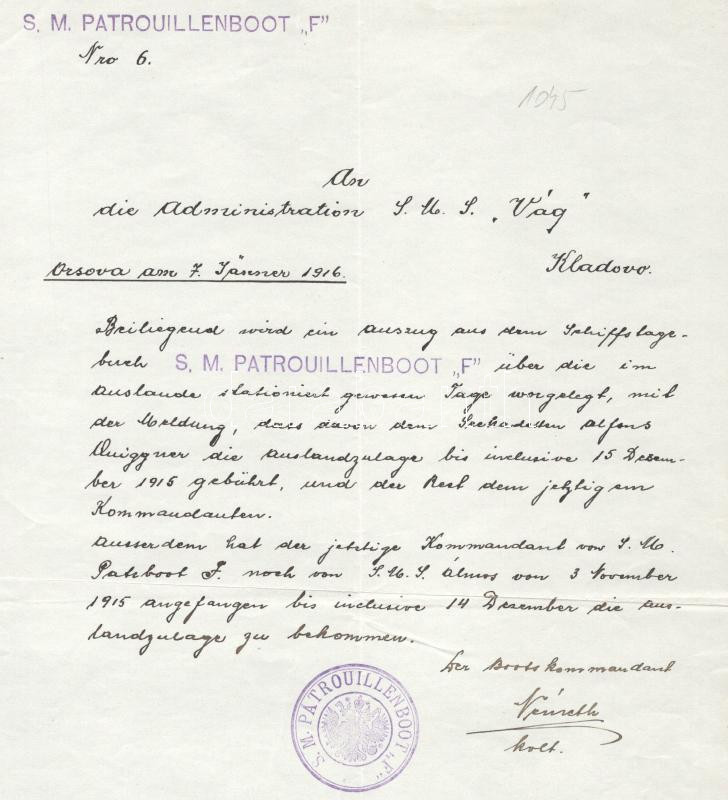 S. M. PATROUILLENBOOT „F"
Nro 6.
1045
An
die Administration S. M. S. „Vág"
Kladovo.
Orsova am 7. Jänner 1916.
Beiliegend wird ein Auszug aus dem Schiffstage-
buch S. M. PATROUILLENBOOT „F" über die im
Auslande stationiert gewesen Tage vorgelegt, mit
der Meldung, dass davon dem Seekadetten Alfons
die Auslandzulage bis inclusive 15 Dezem-
ber 1915 gebührt, und der Rest dem jetztigem
Kommandanten.
Ausserdem hat der jetztige Kommandant von S. M.
Patrboot F. noch von S. M. S. Álmos von 3 November
1915 angefangen bis inclusive 14 Dezember die Aus-
landzulage zu bekommen.
Der Bootskommandant
Németh
S. M. PATROUILLENBOOT „F"